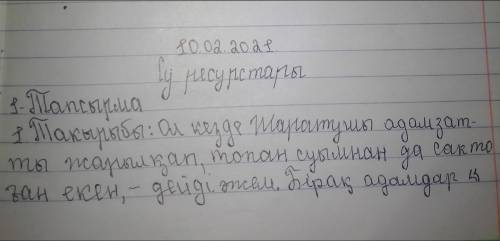 10.02.2021
Су ресурстары
1-Тапсырма
1 Тақырыбы: Ол кезде Жаратушы адамзат-
ты жарылқап, топан суымнан да сақто
ған екен, – дейді әжем. Бірақ адамдар